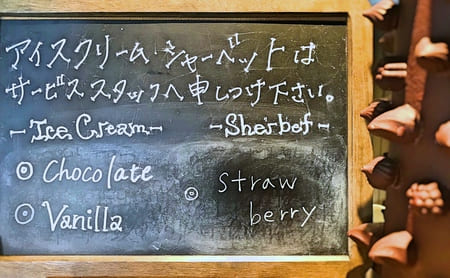 アイスクリーム・シャーベットは
サービススタッフへ申しつけ下さい。
-Ice Cream- -Sherbet-
◎ Chocolate
◎ Straw
berry
◎ Vanilla